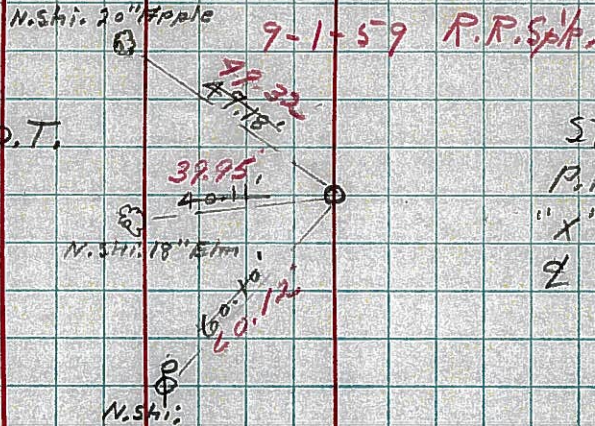 N.Shi. 20" Apple
9-1-59 R.R.Spk.
49.32'
49.18'
.T.
39.95'
40.11'
N.Shi. 18" Elm
P.
"X"
60.10'
60.12'
N.Shi.